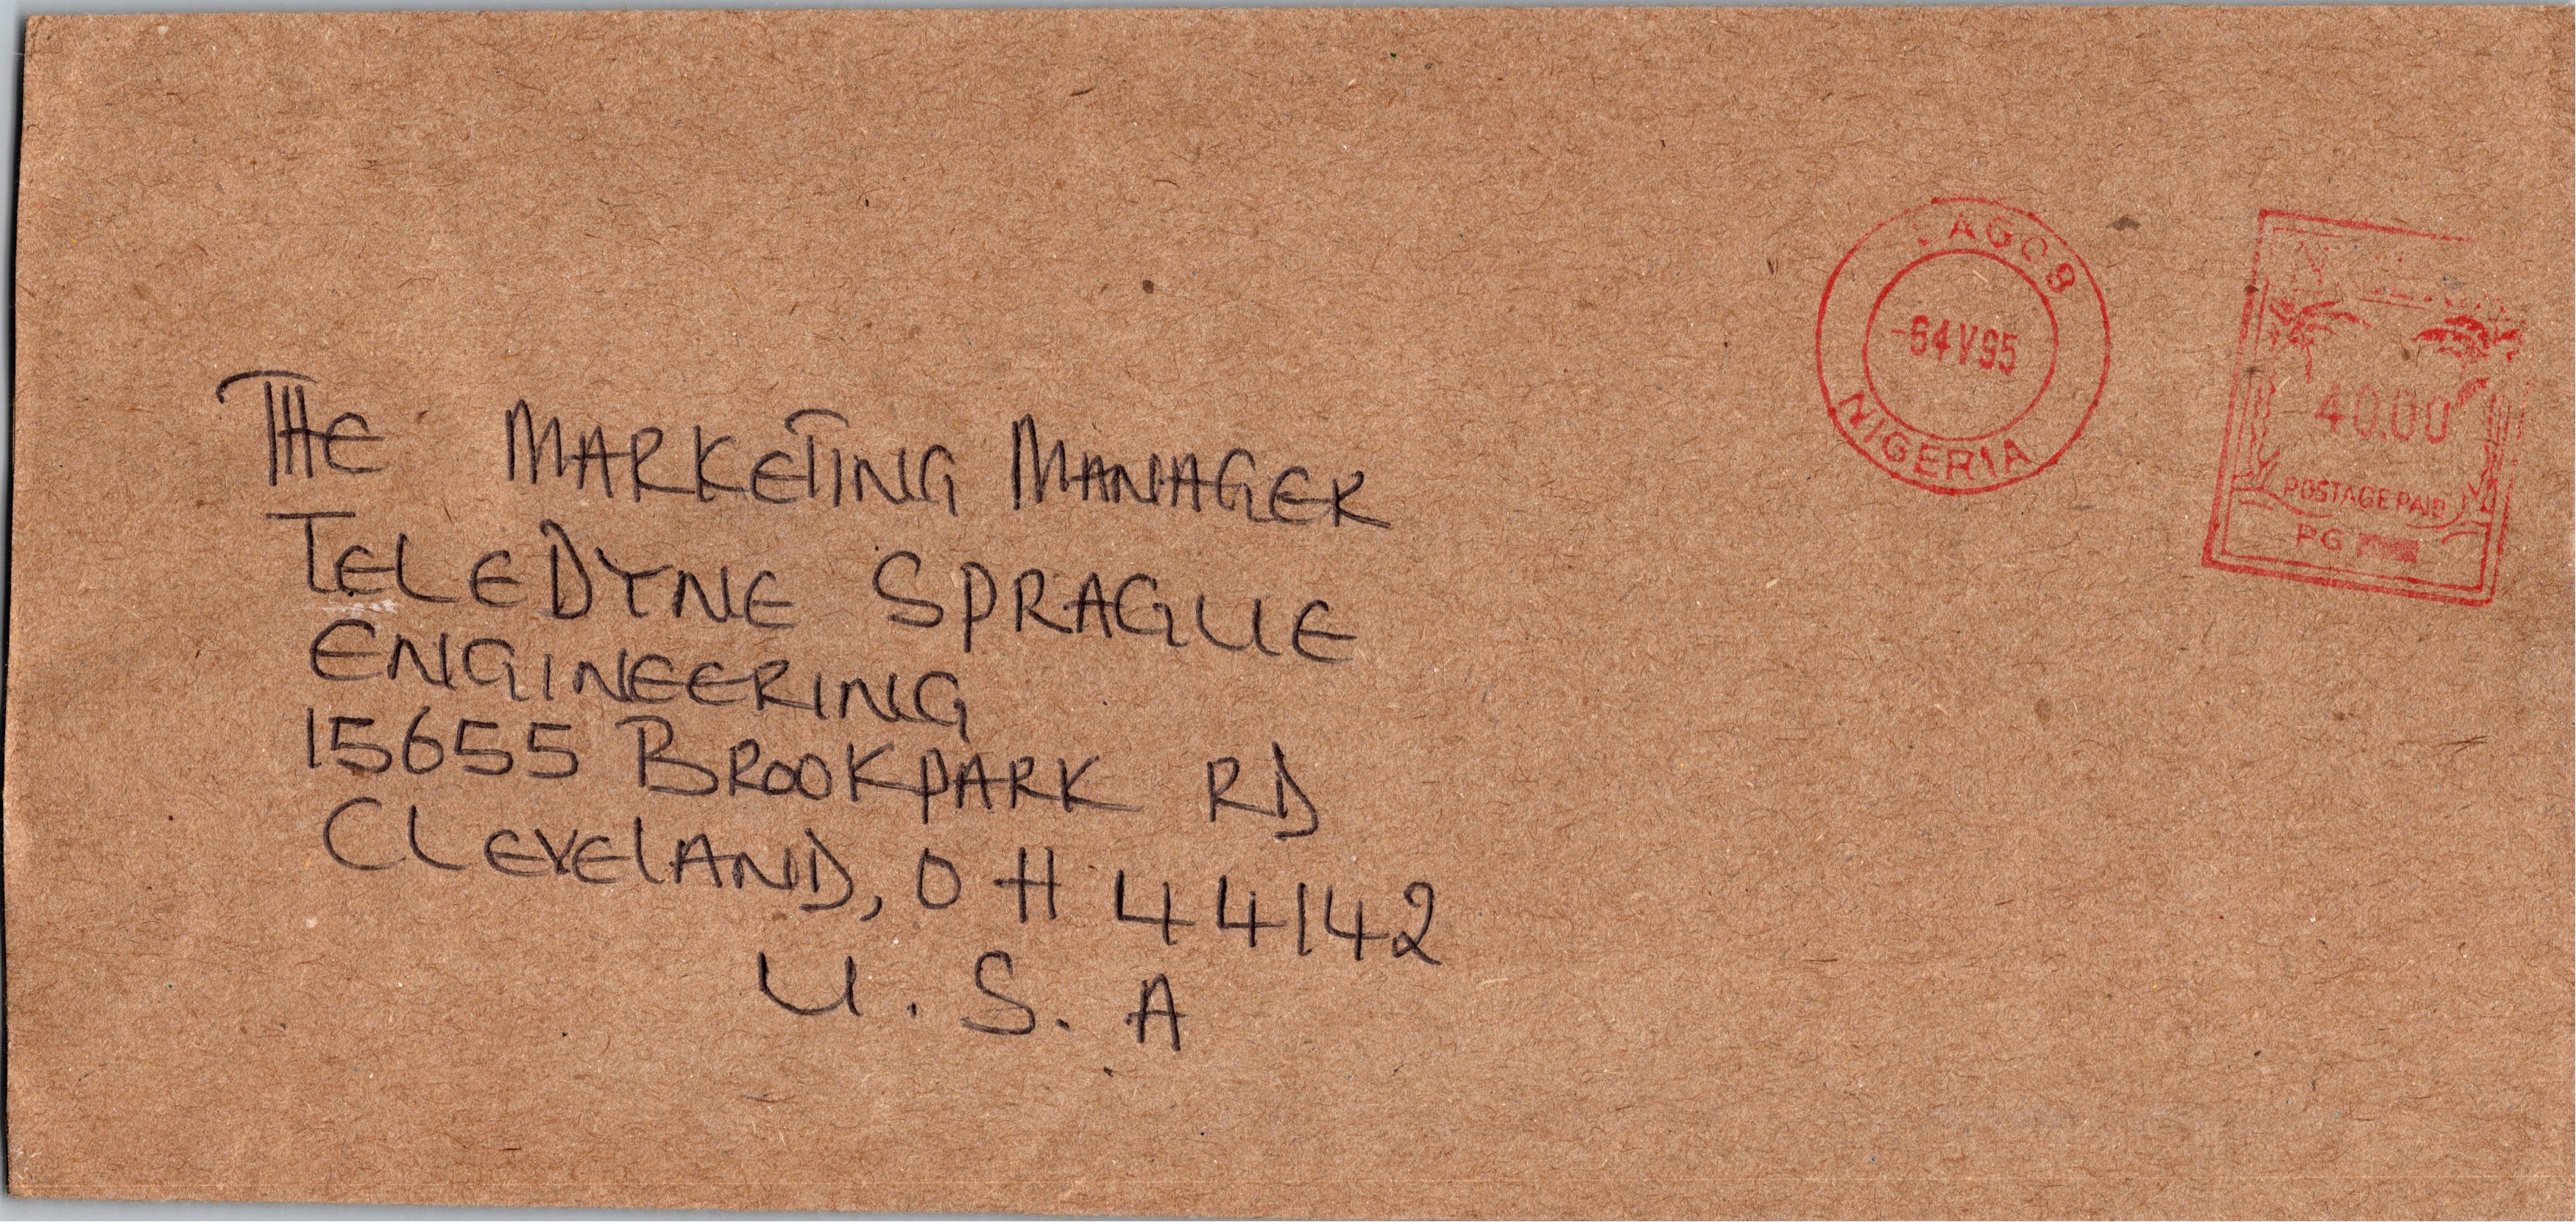 THE MARKETING MANAGER
TELEDYNE SPRAGUE
ENGINEERING
15655 BROOKPARK RD
CLEVELAND, OH 44142
U. S. A
LAGOS
NIGERIA
40.00
POSTAGE PAID
PG